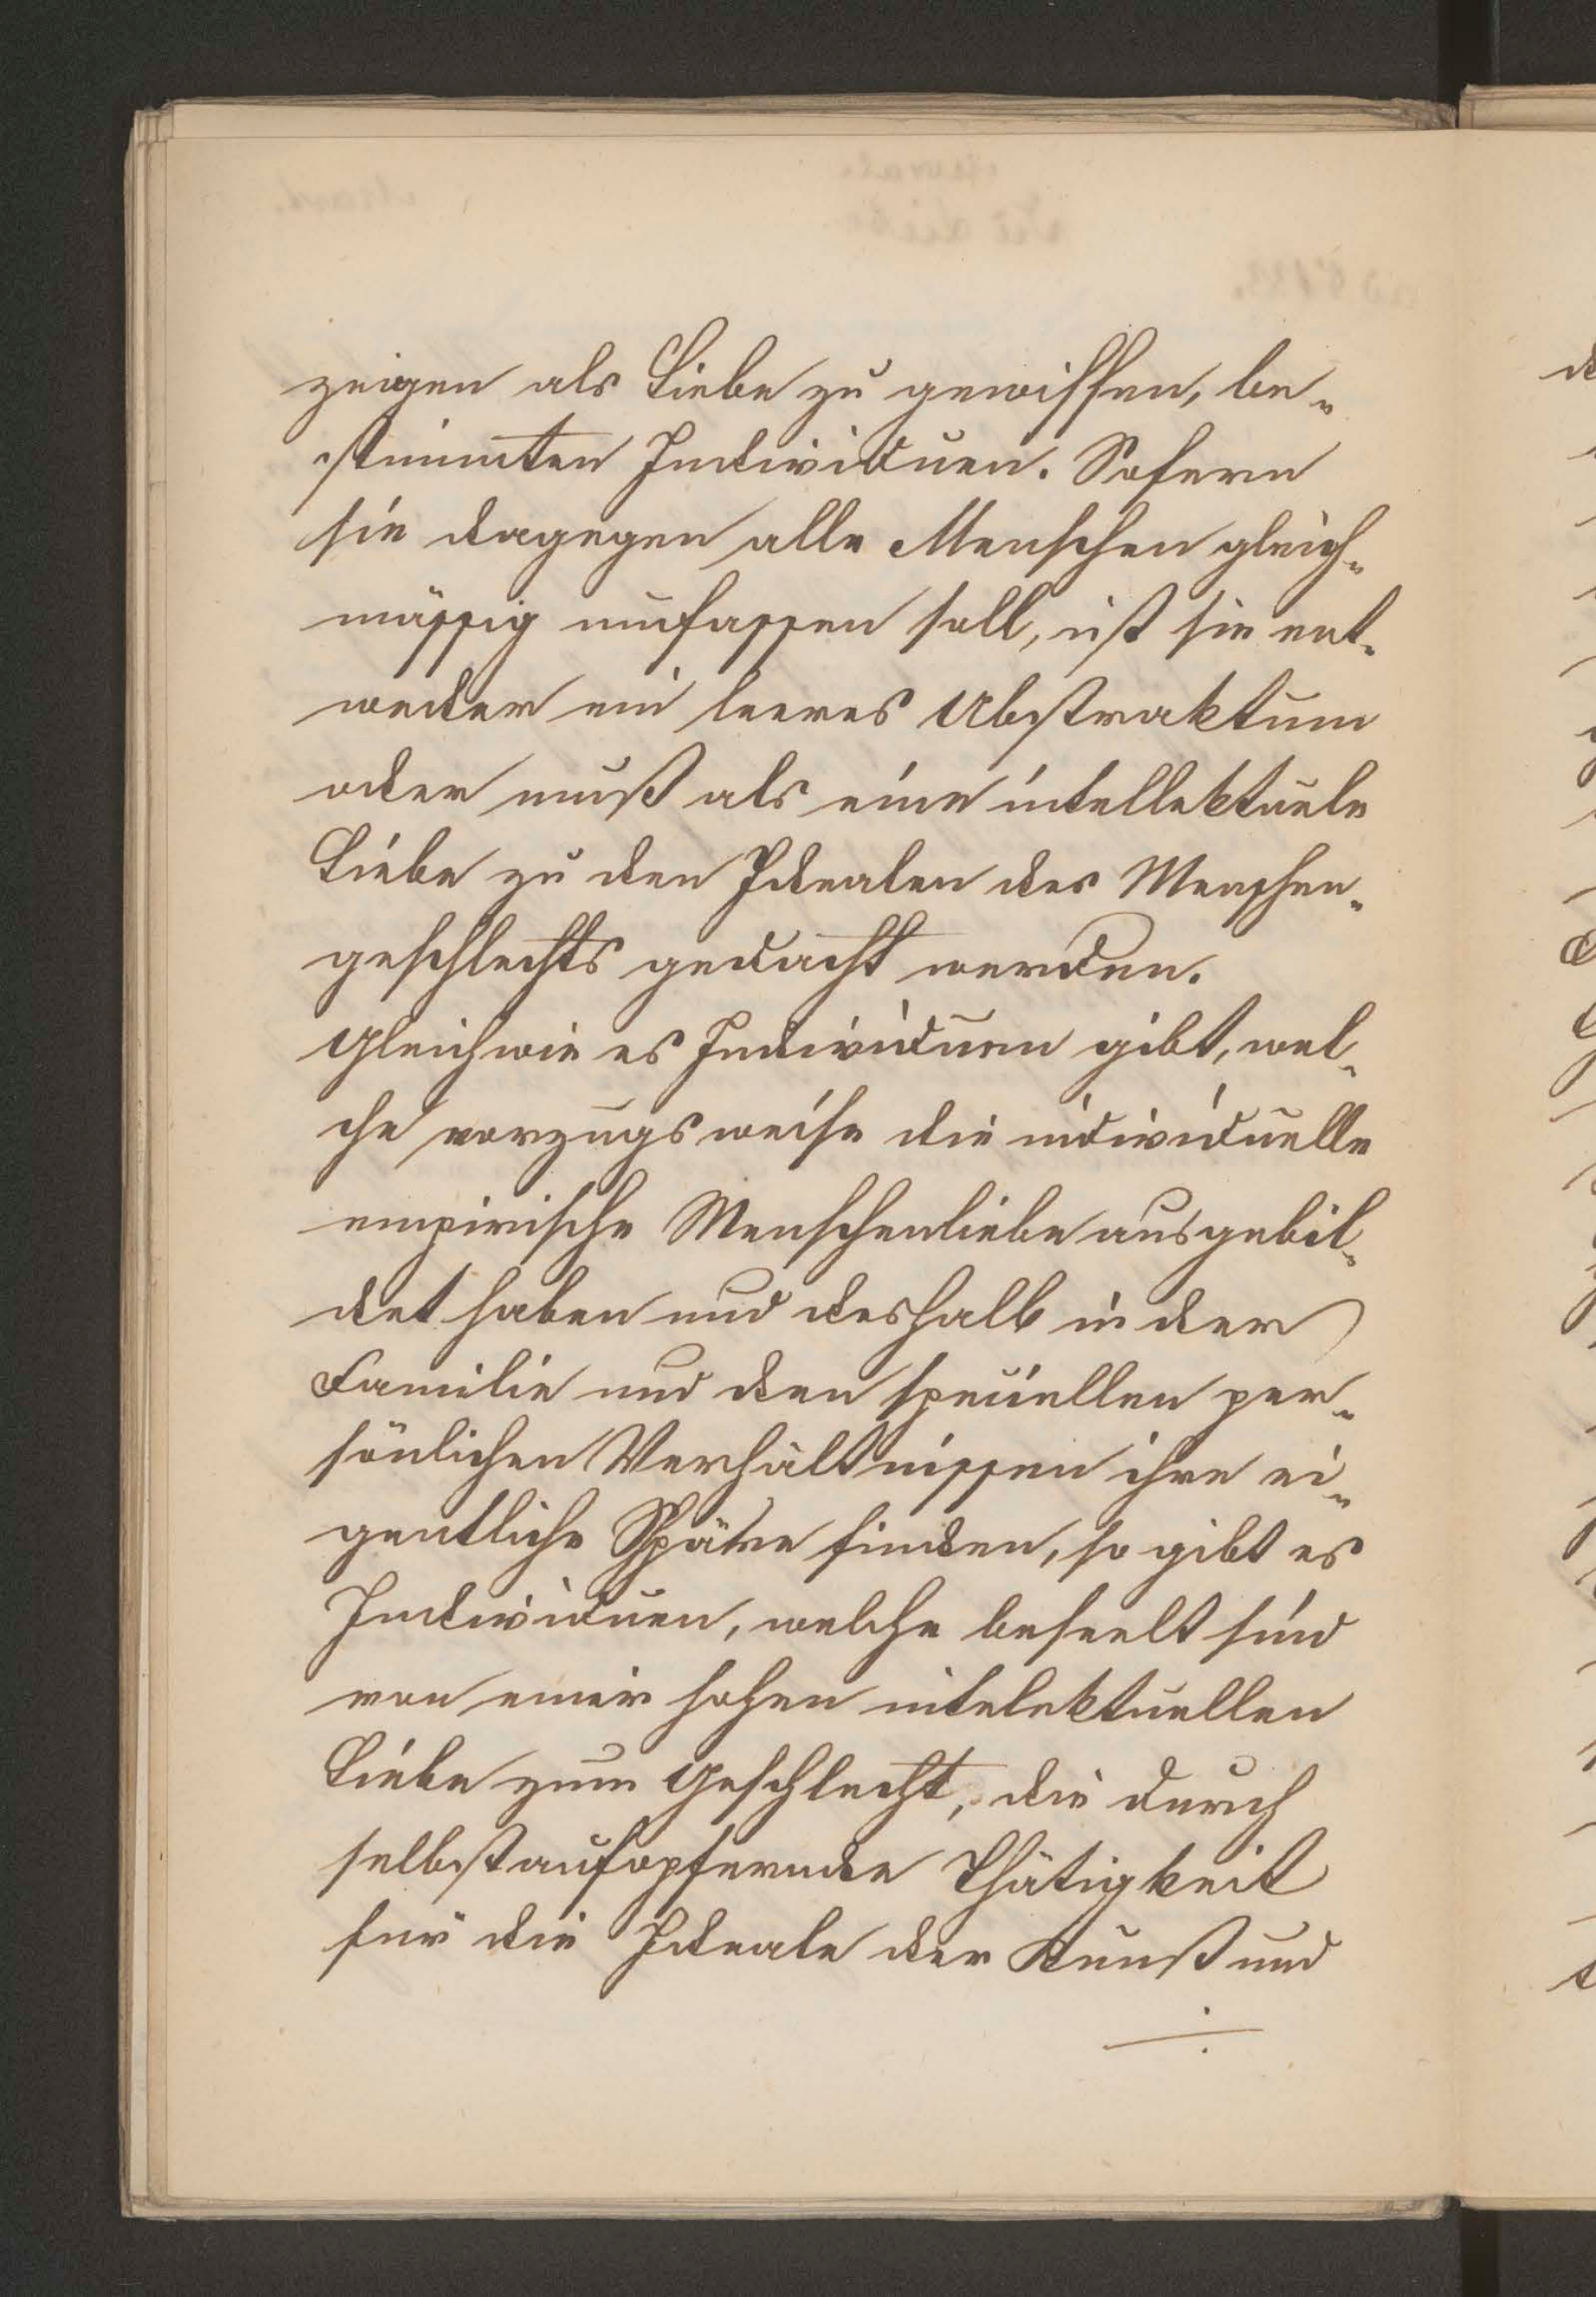 zeigen als Liebe zu gewissen, be-
stimmten Individuen. Sofern
sie dagegen alle Menschen gleich-
mässig umfassen soll, ist sie ent-
weder ein leeres Abstraktum
oder muß als eine intellektuele
Liebe zu den Idealen des Menschen-
geschlechts gedacht werden.
Gleichwie es Individuen gibt, wel-
che vorzugsweise die individuelle
empirische Menschenliebe ausgebil-
det haben und deshalb in der
Familie und den speciellen per-
sönlichen Verhältnissen ihre ei-
gentliche Sphäre finden, so gibt es
Individuen, welche beseelt sind
von einer hohen intelektuellen
Liebe zum Geschlecht, die durch
selbstaufopfernde Thätigkeit
für die Ideale der Kunst und